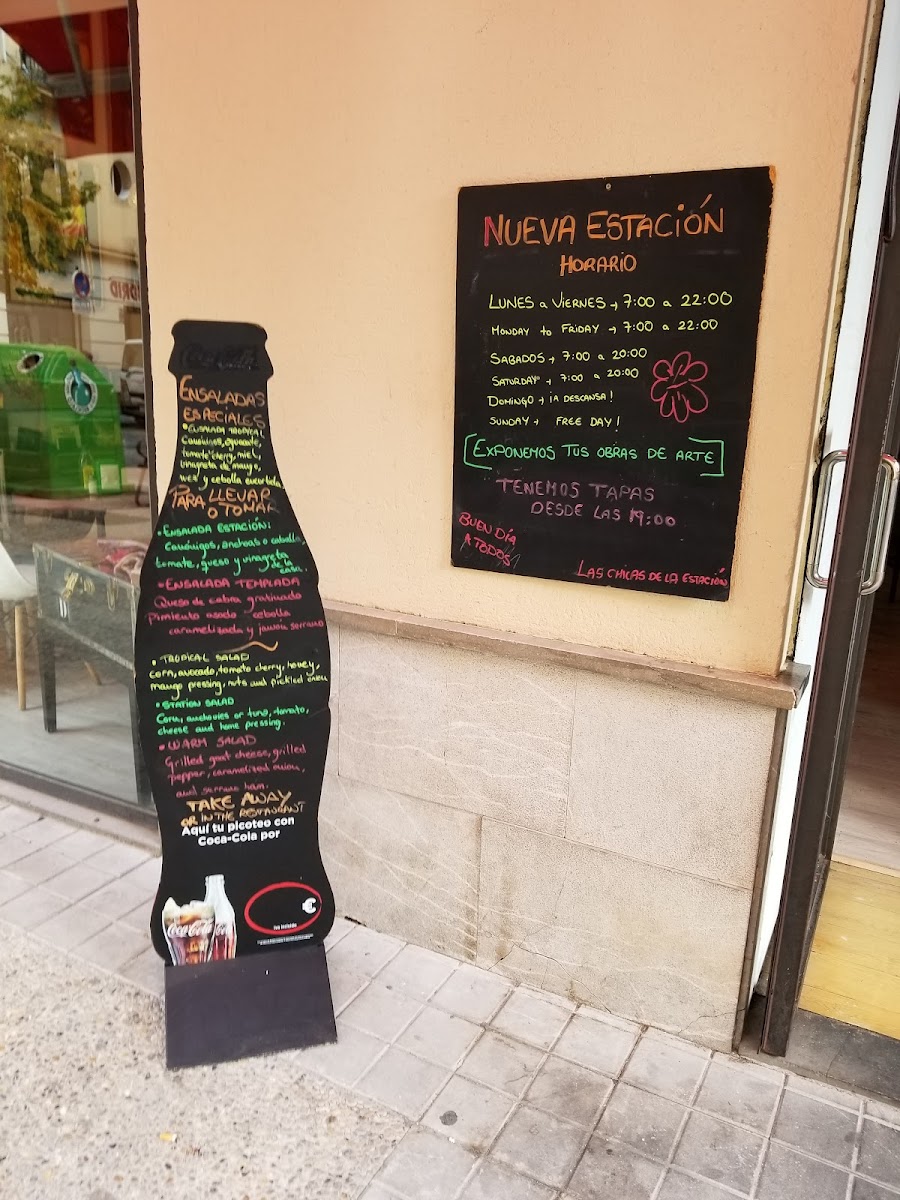 NUEVA ESTACIÓN
HORARIO
LUNES a VIERNES → 7:00 a 22:00
MONDAY to FRIDAY → 7:00 a 22:00
SABADOS → 7:00 a 20:00
SATURDAY → 7:00 a 20:00
DOMINGO → ¡A DESCANSA!
SUNDAY → FREE DAY!
EXPONEMOS TUS OBRAS DE ARTE
TENEMOS TAPAS
DESDE LAS 19:00
BUEN DÍA
A TODOS
LAS CHICAS DE LA ESTACIÓN
Coca-Cola
ENSALADAS
ESPECIALES
• ENSALADA TROPICAL
Canónigos, aguacate,
tomate cherry, miel,
vinagreta de mango,
y cebolla encurtida
PARA LLEVAR
O TOMAR
• ENSALADA ESTACIÓN:
Canónigos, anchoas o caballa,
tomate, queso y vinagreta
de la
casa.
• ENSALADA TEMPLADA
Queso de cabra gratinado
Pimiento asado cebolla
caramelizada y jamón serrano
• TROPICAL SALAD
Corn, avocado, tomato cherry, honey,
mango pressing, nuts and pickled onion
• STATION SALAD
Corn, anchovies or tuna, tomato,
cheese and home pressing.
• WARM SALAD
Grilled goat cheese, grilled
pepper, caramelized onion,
and serrano ham.
TAKE AWAY
OR IN THE RESTAURANT
Aquí tu picoteo con
Coca-Cola por
€
Coca-Cola
IVA incluido